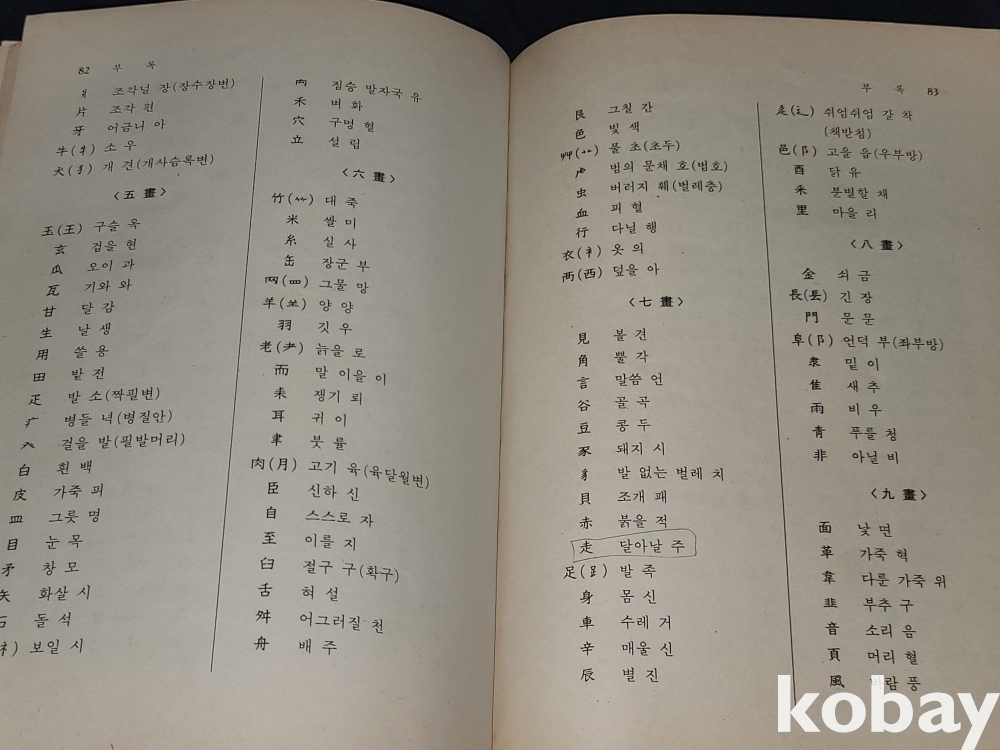 82 부 록
爿 조각널 장(장수장변)
片 조각 편
牙 어금니 아
牛(牜) 소 우
犬(犭) 개 견(개사슴록변)
〈五 畫〉
玉(王) 구슬 옥
玄 검을 현
瓜 오이 과
瓦 기와 와
甘 달 감
生 날 생
用 쓸 용
田 밭 전
疋 발 소(짝필변)
疒 병들 녁(병질안)
癶 걸을 발(필발머리)
白 흰 백
皮 가죽 피
皿 그릇 명
目 눈 목
矛 창 모
矢 화살 시
石 돌 석
礻) 보일 시
禸 짐승 발자국 유
禾 벼 화
穴 구멍 혈
立 설 립
〈六 畫〉
竹(⺮) 대 죽
米 쌀 미
糸 실 사
缶 장군 부
网(罒) 그물 망
羊(⺷) 양 양
羽 깃 우
老(耂) 늙을 로
而 말 이을 이
耒 쟁기 뢰
耳 귀 이
聿 붓 률
肉(月) 고기 육(육달월변)
臣 신하 신
自 스스로 자
至 이를 지
臼 절구 구(확구)
舌 혀 설
舛 어그러질 천
舟 배 주
부 록 83
艮 그칠 간
色 빛 색
艸(艹) 풀 초(초두)
虍 범의 문채 호(범호)
虫 버러지 훼(벌레충)
血 피 혈
行 다닐 행
衣(衤) 옷 의
襾(西) 덮을 아
〈七 畫〉
見 볼 견
角 뿔 각
言 말씀 언
谷 골 곡
豆 콩 두
豕 돼지 시
豸 발 없는 벌레 치
貝 조개 패
赤 붉을 적
走 달아날 주
足(⻊) 발 족
身 몸 신
車 수레 거
辛 매울 신
辰 별 진
辵(辶) 쉬엄쉬엄 갈 착
(책받침)
邑(阝) 고을 읍(우부방)
酉 닭 유
釆 분별할 채
里 마을 리
〈八 畫〉
金 쇠 금
長(镸) 긴 장
門 문 문
阜(阝) 언덕 부(좌부방)
隶 밑 이
隹 새 추
雨 비 우
靑 푸를 청
非 아닐 비
〈九 畫〉
面 낯 면
革 가죽 혁
韋 다룬 가죽 위
韭 부추 구
音 소리 음
頁 머리 혈
風 바람 풍
kobay